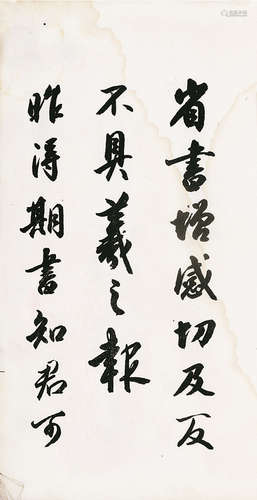 省書增感切及反
不具羲之報
昨得期書知君可